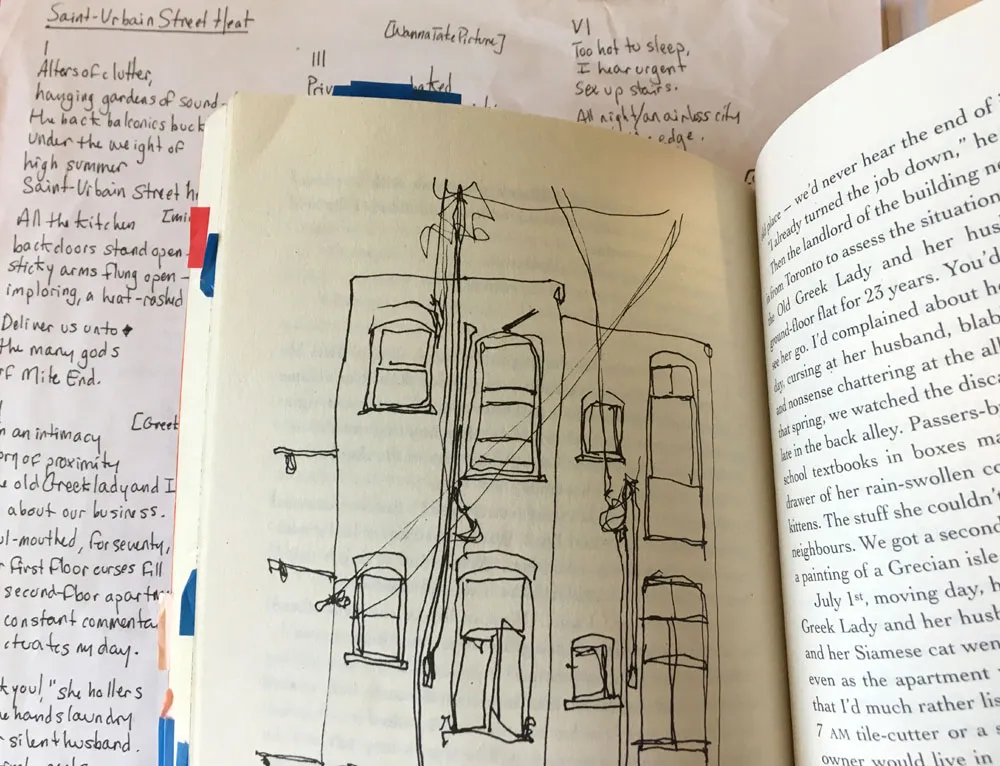 Saint-Urbain Street Heat
I
Alters of clutter,
hanging gardens of sound-
the back balconies buck
under the weight of
high summer
Saint-Urbain Street h
All the kitchen
back doors stand open-
sticky arms flung open-
imploring, a heat-rashed
Deliver us unto
the many gods
of Mile End.
an intimacy
of proximity
old Greek lady and I
about our business.
-mouthed, for seventy,
first floor curses fill
second-floor apartm
constant commenta
my day.
you!," she hollers
hands laundry
silent husband.
[WannaTakePicture]
III
Priv baked
VI
Too hot to sleep,
I hear urgent
sex up stairs.
All night/an airless city
edge.
[Greet
place — we'd never hear the end of
"I already turned the job down," he
Then the landlord of the building ne
from Toronto to assess the situation
the Old Greek Lady and her hus
ground-floor flat for 23 years. You'd
see her go. I'd complained about he
day, cursing at her husband, blab
and nonsense chattering at the all
that spring, we watched the disca
late in the back alley. Passers-b
school textbooks in boxes ma
drawer of her rain-swollen co
kittens. The stuff she couldn't
neighbours. We got a second
a painting of a Grecian isle
July 1st, moving day, h
Greek Lady and her husb
and her Siamese cat wen
even as the apartment
that I'd much rather lis
7 AM tile-cutter or a s
owner would live in